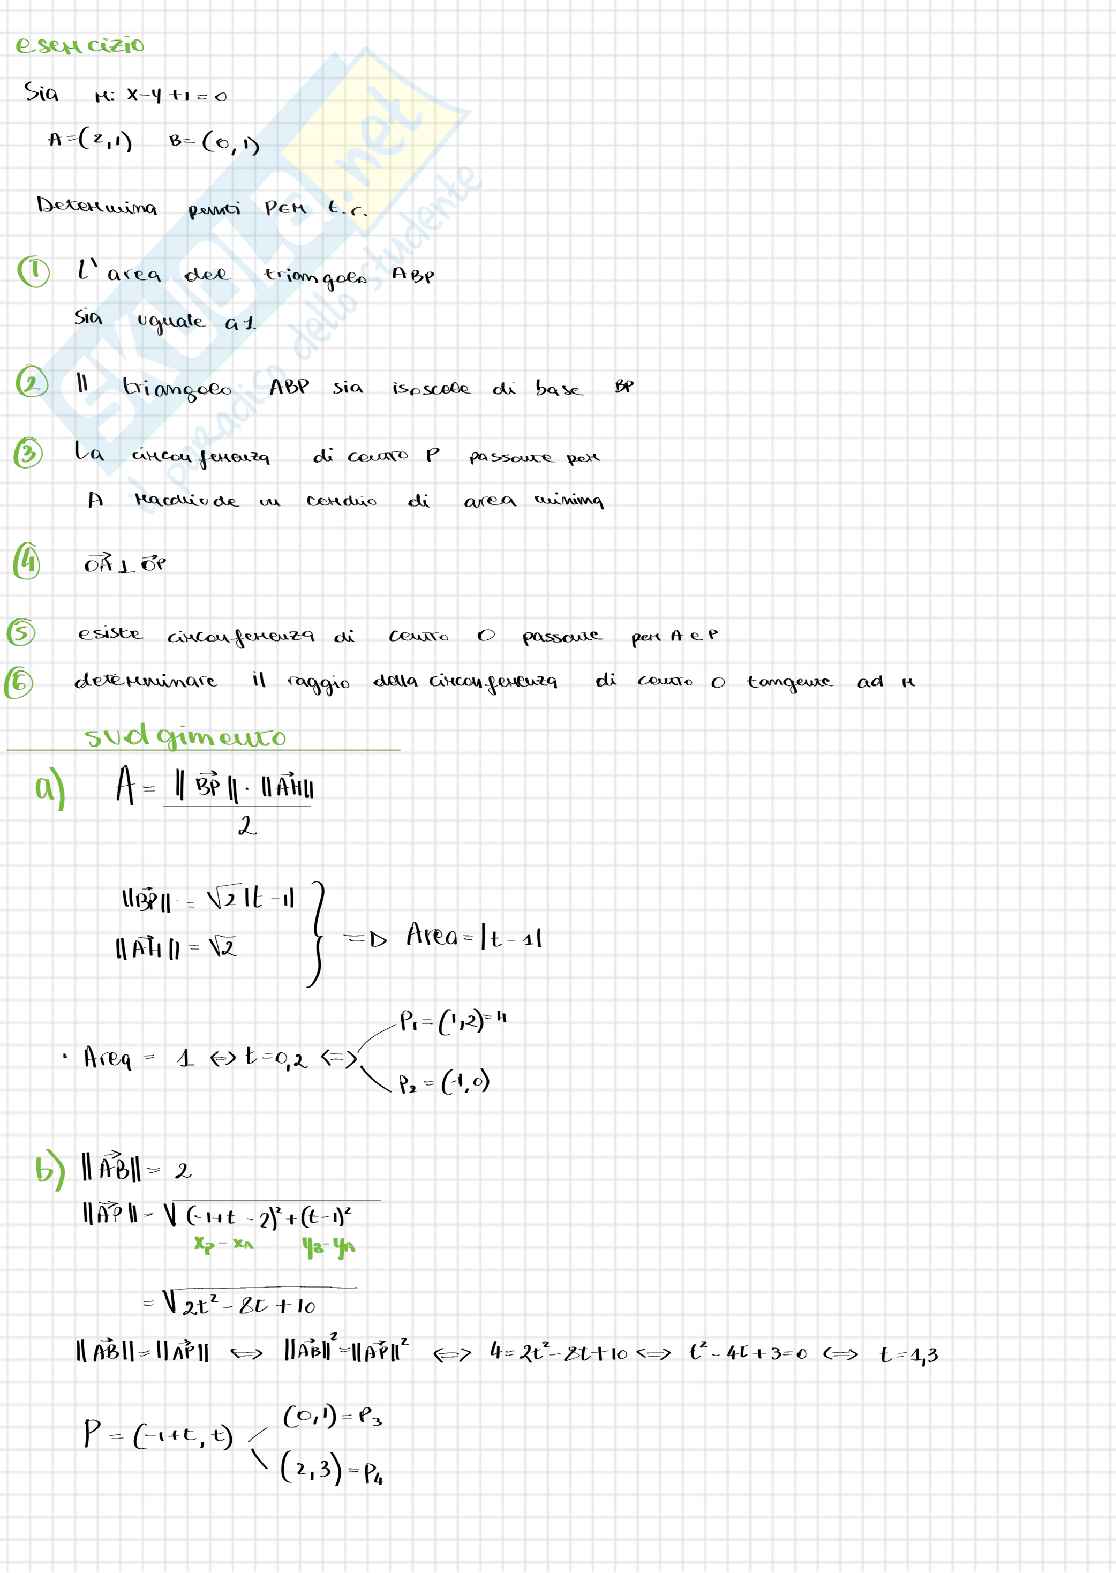 esercizio
Sia r: x-y+1=0
A=(2,1) B=(0,1)
Determina punti P∈r t.c.
① L'area del triangolo ABP
sia uguale a 1
② Il triangolo ABP sia isoscele di base BP
③ La circonferenza di centro P passante per
A racchiude un cerchio di area minima
④ OA⃗ ⊥ OP⃗
⑤ esiste circonferenza di centro O passante per A e P
⑥ determinare il raggio della circonferenza di centro O tangente ad r
svolgimento
a) A = ||BP⃗|| · ||AH⃗|| / 2
||BP⃗|| = √2 |t-1|
||AH⃗|| = √2
} => Area = |t-1|
P₁=(1,2)=H
· Area = 1 <=> t=0,2 <=>
P₂=(-1,0)
b) ||AB⃗|| = 2
||AP⃗|| = √(-1+t-2)²+(t-1)²
xP-xA yB-yA
= √2t²-8t+10
||AB⃗||=||AP⃗|| <=> ||AB⃗||²=||AP⃗||² <=> 4=2t²-8t+10 <=> t²-4t+3=0 <=> t=1,3
(0,1)=P₃
P=(-1+t,t)
(2,3)=P₄
SKUOLA.net
il paradiso dello studente